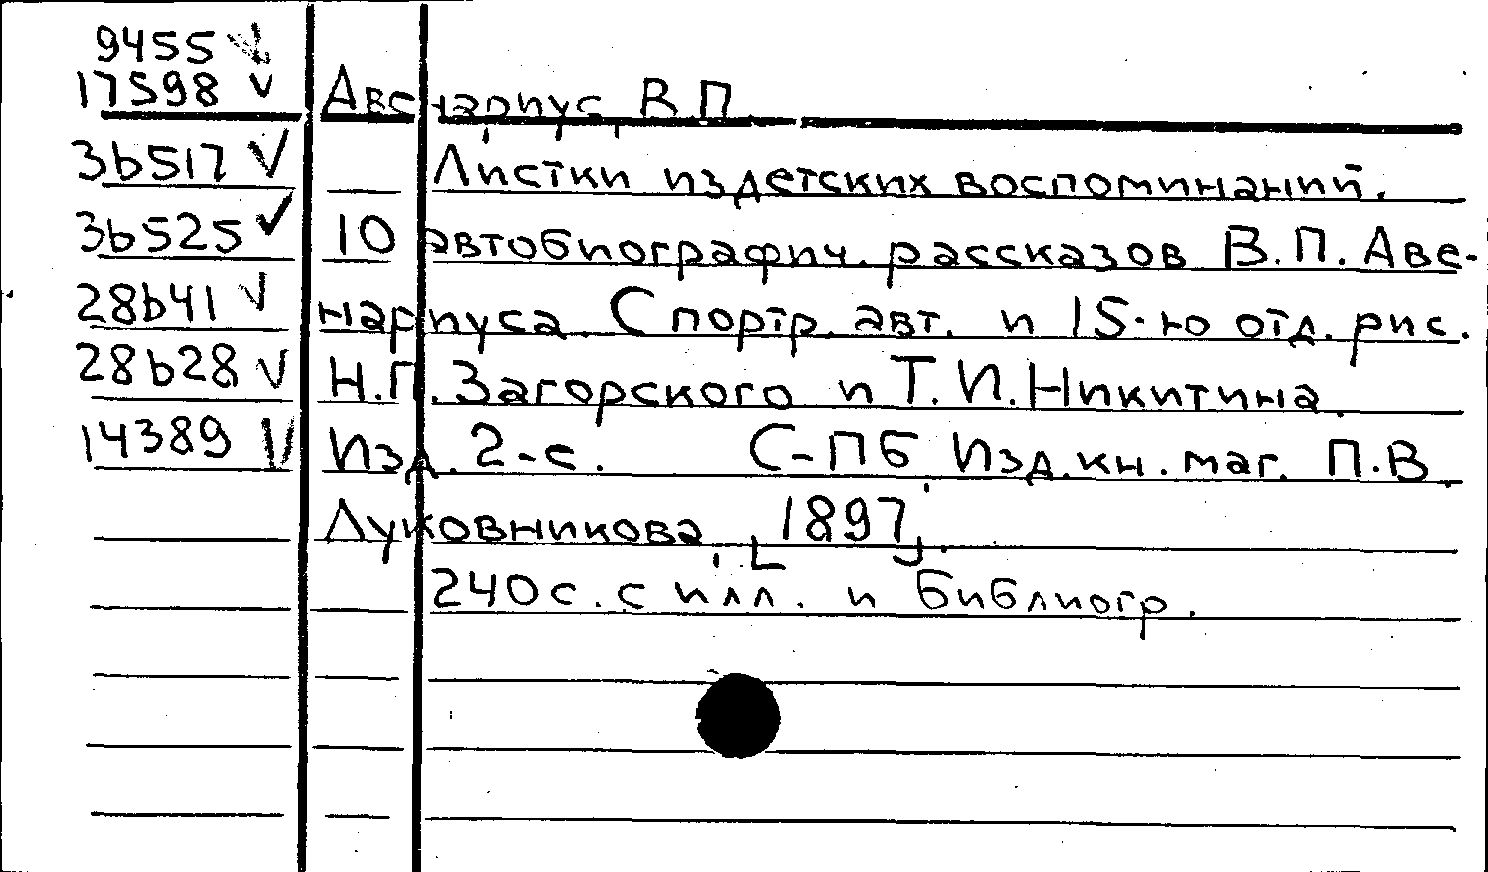 9455 ✓
17598 ✓ Авенариус, В.П.
36517 ✓ Листки из детских воспоминаний.
36525 ✓ 10 автобиографич. рассказов В.П. Аве-
28641 ✓ нариуса. С портр. авт. и 15-ю отд. рис.
28628 ✓ Н.П. Загорского и Т.И. Никитина.
14389 ✓ Изд. 2-е. С-ПБ, Изд. кн. маг. П.В.
Луковникова, [1897].
240 с. с илл. и библиогр.